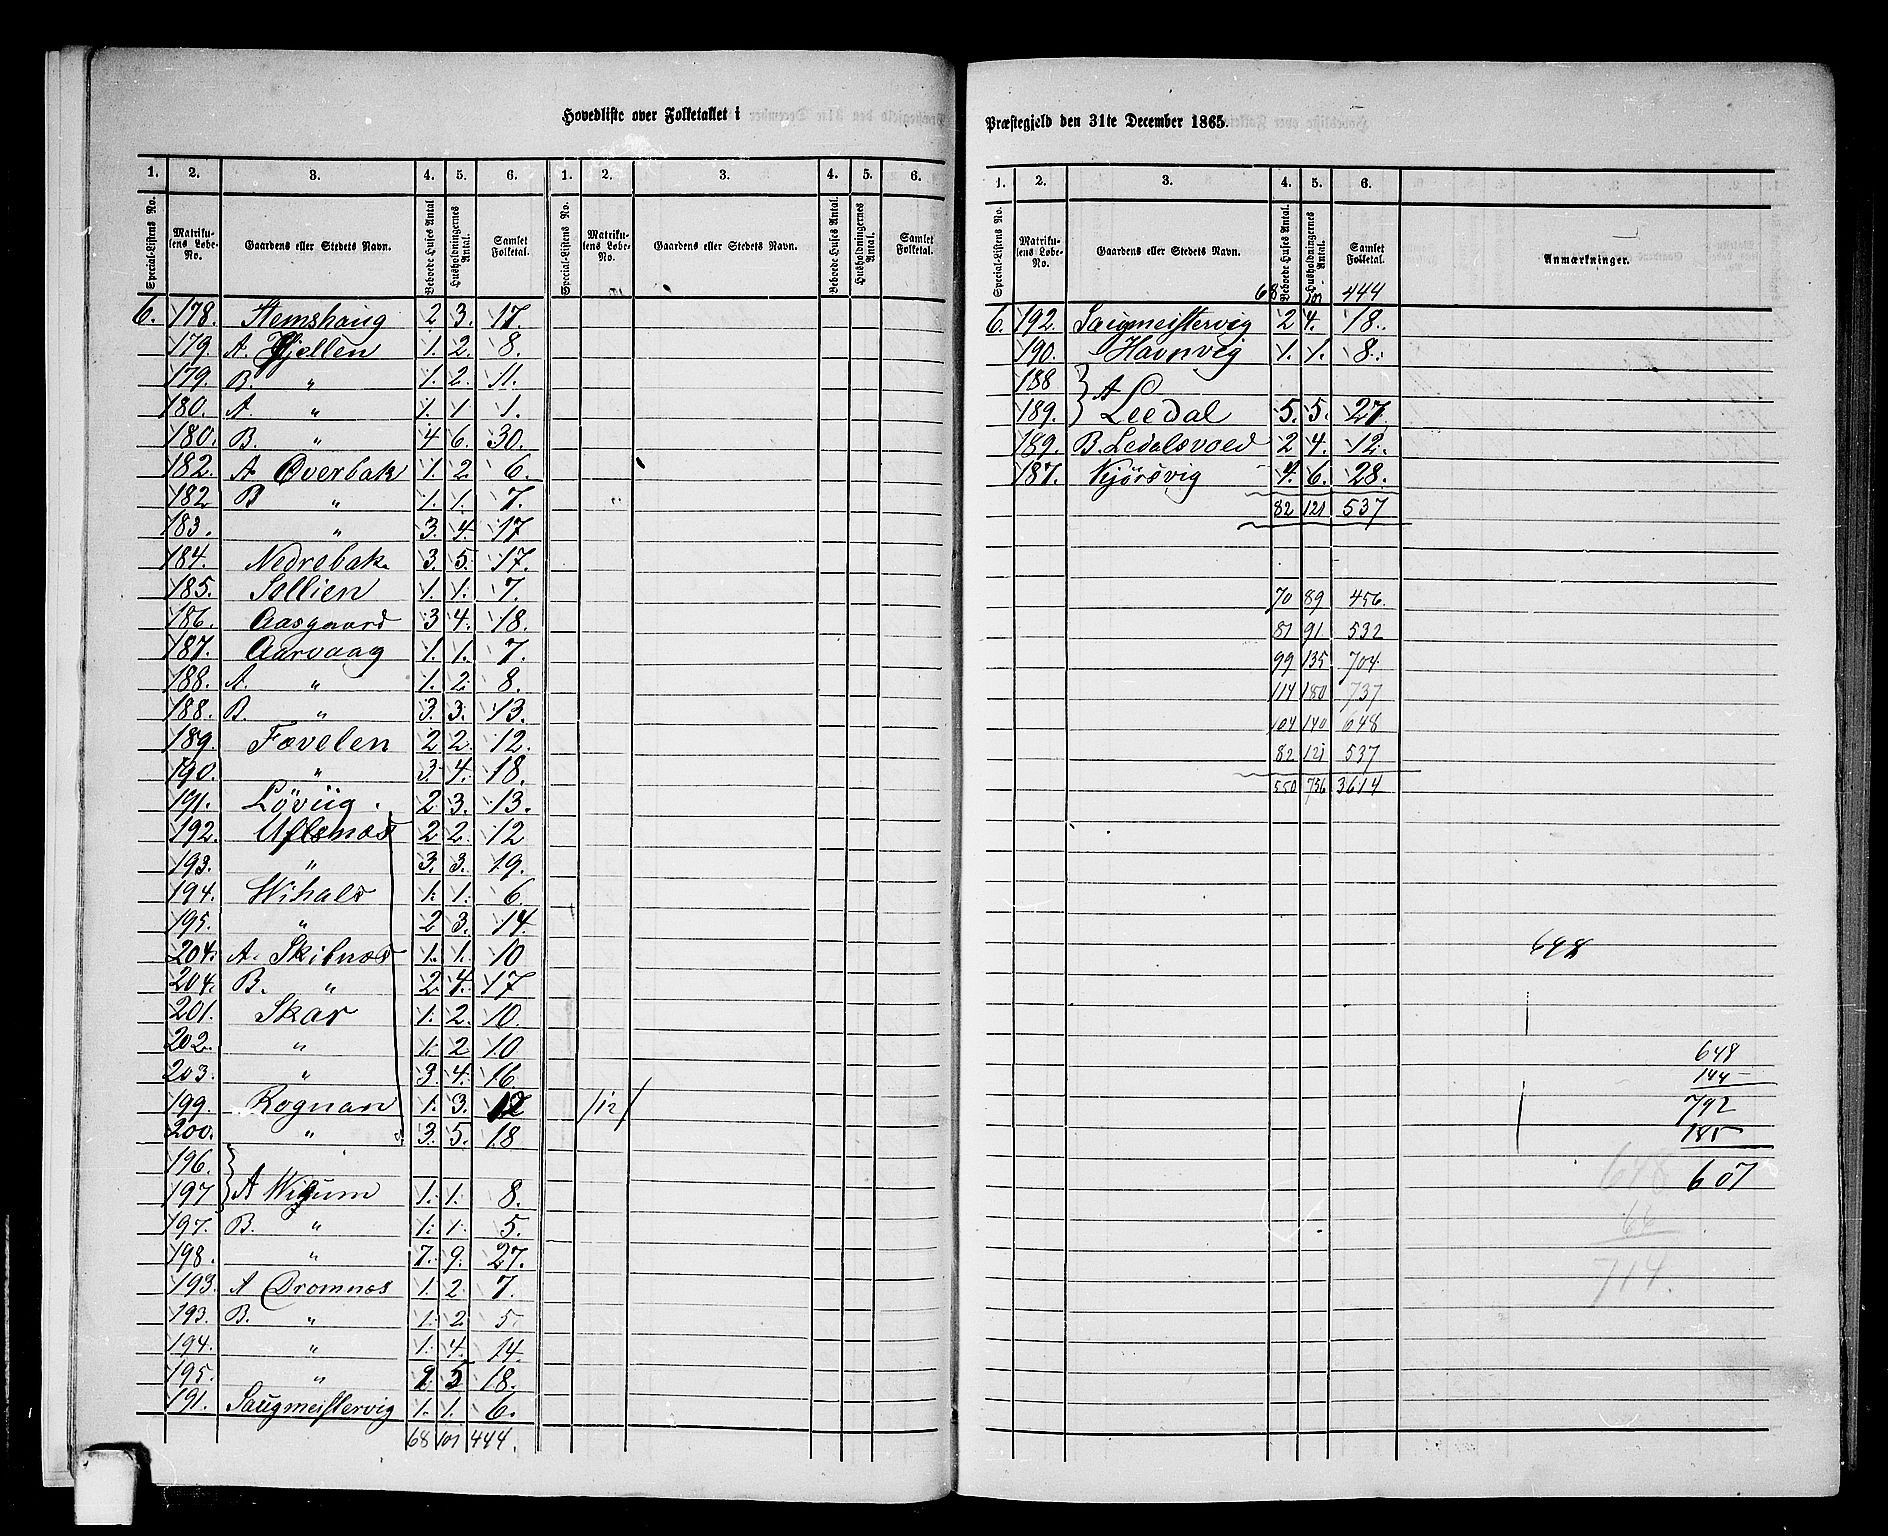 Hovedliste over Folketallet i
1. 2. 3. 4. 5. 6. 1. 2. 3. 4. 5. 6.
Special-Listens No. Matrikulens Løbe-No. Gaardens eller Stedets Navn. Beboede Huses Antal Husholdningernes Antal. Samlet Folketal. Special-Listens No. Matrikulens Løbe-No. Gaardens eller Stedets Navn. Beboede Huses Antal. Husholdningernes Antal. Samlet Folketal.
6. 178. Stemshaug 2 3. 17.
179. A. Fjellen 1. 2. 8.
179. B. " 1. 2. 11.
180. A. " 1. 1 1.
180. B. " 4 6. 30.
182. A Øverbak 1. 2. 6.
182 B " 1. 1. 7.
183. " 3. 4. 17
184. Nedrebak 3. 5. 17.
185. Sollien 1. 1. 7.
186. Aasgaard 3 4. 18.
187. Aarvaag 1. 1. 7.
188. A. " 1. 2. 8.
188. B. " 3. 3. 13.
189. Fævelen 2 2. 12.
190. " 3. 4. 18.
191. Løviig. 2 3. 13.
192. Uflsnæs 2 2. 12
193. " 3. 3. 19.
194. Wihals 1. 1. 6.
195. " 2 3. 14.
204. A. Skibnæs 1. 1. 10
204. B. " 2. 4. 17
201. Skar 1. 2. 10.
202. " 1. 2 10
203. " 3. 4. 16.
199. Rognan 1. 3. 12 /12/
200. " 3. 5. 18
196.
197 A Wigum 1. 1. 8.
197. B. " 1. 1. 5.
198. " 7. 9. 27.
193. A Dromnæs 1. 2. 7.
193. B. " 1. 2 5.
194. " 1. 4. 14.
195. " 2 5 18.
191. Saugmeistervig 1. 1. 6.
68 101 444.
Præstegjeld den 31te December 1865.
1. 2. 3. 4. 5. 6.
Special-Listens No. Matrikulens Løbe-No. Gaardens eller Stedets Navn. Beboede Huses Antal. Husholdningernes Antal. Samlet Folketal. Anmærkninger.
68 101 444
6. 192. Saugmeistervig 2 4. 18.
190. Havnvig 1. 1. 8.
188 A
189. Leedal 5. 5. 27.
189. B. Ledalsvaed 2 4. 12.
187. Kjørsvig 4. 6. 28.
82 121 537
70 89 456.
81 91 532
99 135 704.
114 180 737
104 140 648
82 121 537
550 756 3614
648
648
144
792
185
607
648
66
714.